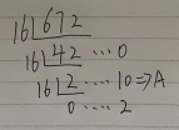 16|672
16|42 ...0
16|2 .... 10⇒A
0 .... 2